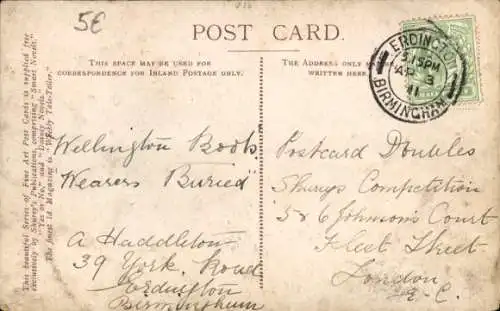 5€
POST CARD.
THIS SPACE MAY BE USED FOR
CORRESPONDENCE FOR INLAND POSTAGE ONLY.
THE ADDRESS ONLY
WRITTEN HERE.
ERDINGTON
5.15PM
AP 3
11
BIRMINGHAM
This beautiful Series of Fine Art Post Cards is supplied free
exclusively by Shurey's Publications, comprising "Smart Novels,"
"Yes or No," and "Dainty Novels."
The finest 1d. Magazine is "Weekly Tale-Teller."
Wellington Boots
Wearers Buried
A Haddleton
39 York Road
Erdington
Birmingham
Postcard Doubles
Shureys Competition
5 & 6 Johnson's Court
Fleet Street
London
E. C.